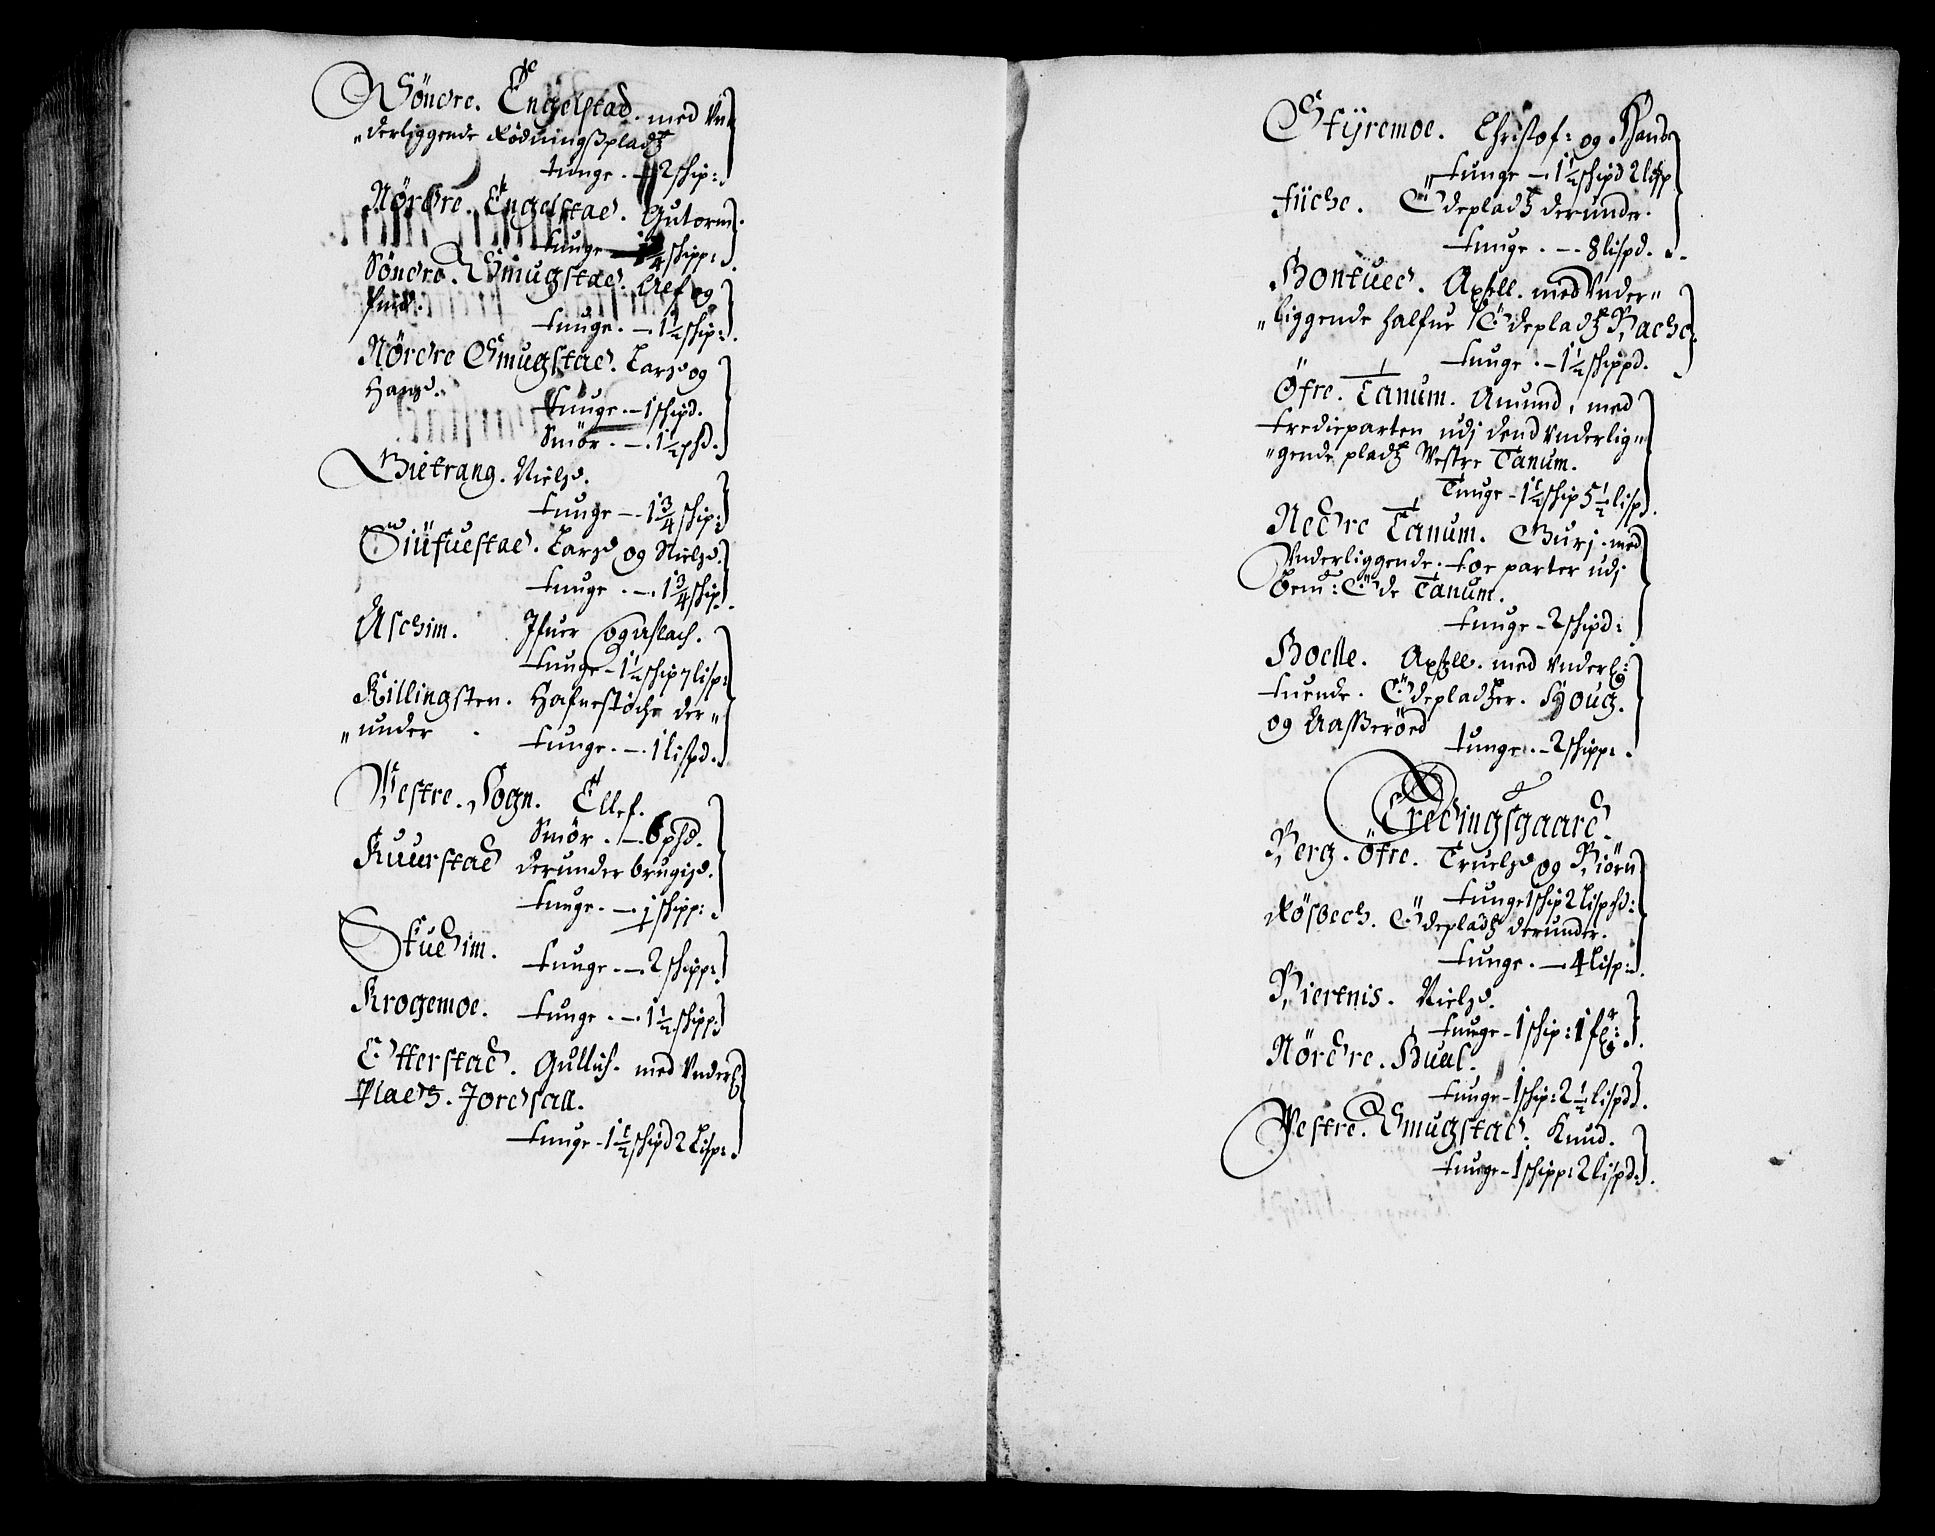 Söndre. Engelstad. med Vn„
„derliggende Rödningßpladtz
tunge. — 2 schip:
Nördre. Engelstad. Gutorm.
tunge — 1/4 schipp:
Söndre. Smugstad. Olef og
Knud.
tunge. — 1 1/2 schip:
Nördre Smugstad. Larss og
Hanss.
tunge. — 1 schipd.
Smör. — 1 1/2 phd.
Bietrang. Nielss.
tunge — 1 3/4 schip:
Siüfuestad. Larss og Nielss.
tunge. — 1 3/4 schip.
Aschim. Ifuer og Aslach.
tunge - 1 1/2 schip 7 lisp:
Killingsten. Hafnestöche der„
„under
tunge. — 1 lispd.
Vestre. Sogn. Ellef.
Smör. — 6 phd.
Kuurstad derunder brugiss.
tunge. — 1 schipp:
Stuehim. tunge. — 2 schipp:
Krogemoe. tunge. — 1 1/2 schipp:
Etterstad. Gullich. med Vnderl:
Plads. Jordsall.
tunge - 1 1/2 schipd 2 Lisp:
Styremoe. Christof: og Hans
tunge — 1 1/2 schipd 2 lisp
Füche. Ödepladtz derunder.
tunge. — 8 lispd.
Bontued. Axsell. med Vnder„
„liggende halfue Ödepladtz Bache
tunge. — 1 1/2 schippd.
Öfre. Tanum. Amund, med
tredieparten udj dend Vnderlig„
„gende pladtz Vestre Tanum.
Tunge - 1 1/2 schip 5 1/2 lisp.
Nedre Tanum. Gurj. med
Vnderliggende. toe parter udj
bem: Öde Tanum.
tunge - 2 schipd:
Boelle. Axsell. med Vnderl:
tuende. Ödepladtzer. Houg.
og Aaßerörd
tunge. — 2 schipp:
Øredingsgaard.
Berg. öfre. Truelss og Biörn
tunge 1 schip 2 Lispd:
Rösbech. Ödepladtz derunder.
tunge. — 4 Lisp:
Biertnis. Nielss.
tunge - 1 schip: 1 fr:
Nördre. Buul.
tunge - 1 schip: 2 1/2 lispd.
Vestre. Smugstad. Knud.
tunge - 1 schipp: 2 lispd.